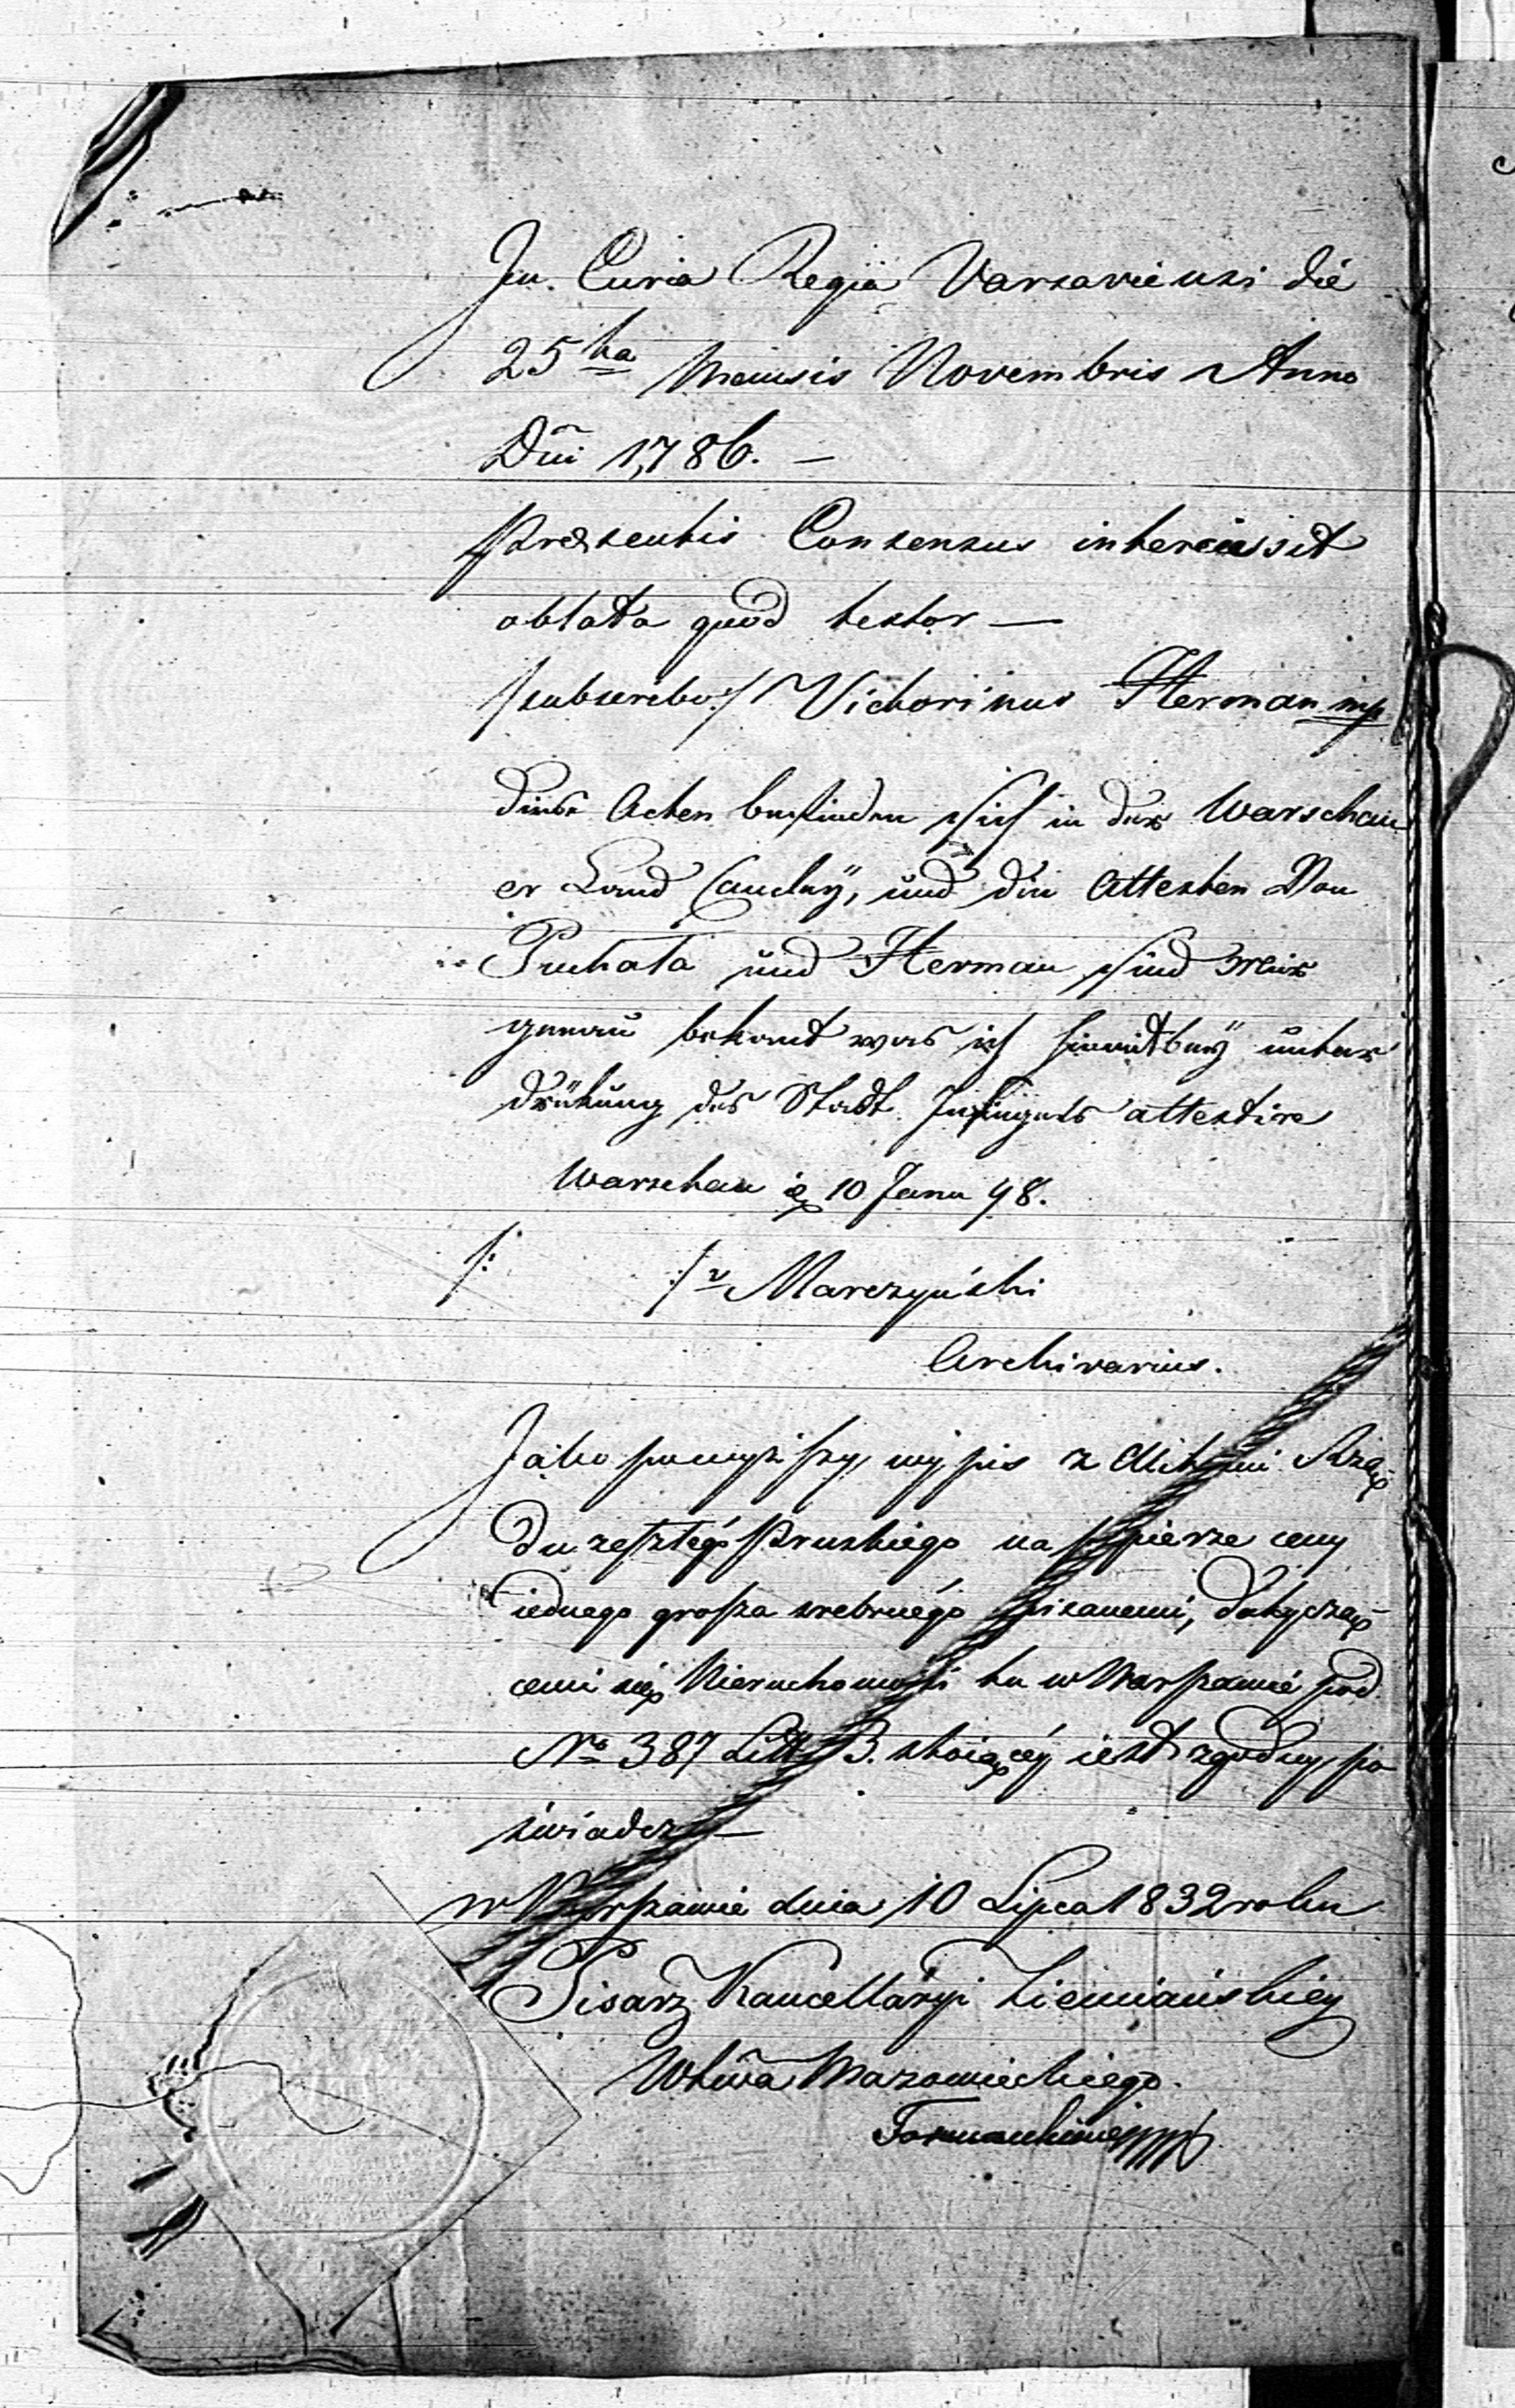 In Curia Regia Varsaviensi die
25ta Mensis Novembris Anno
Dni 1786. —
praesentis Consensus intercessit
oblata quod testor —
/subscribo:/ Victorinus Herman mp
Diese Acten befinden sich in der Warschau
er Land Canzley, und die Attesten Von
Puchala und Herman sind mir
genau bekant was ich hiemit bey unter
drükung des Stadt Insiegels attestire
Warschau d 10 Janu 98.
/: :/ Marczyński
Archivarius.
Jako powyższy wypis z Aktami Rzą
du zeszłégo Pruskiego na papierze ceny
iednego grosza srebrnégo pisanemi, dotyczą
cemi się Nieruchomości tu w Warszawie pod
No 387 Litt B. stoiącéy iest zgodny, po
świadcza —
w Warszawie dnia 10 Lipca 1832 roku
Pisarz Kancellaryi Ziemiańskiey
Wtwa Mazowieckiego.